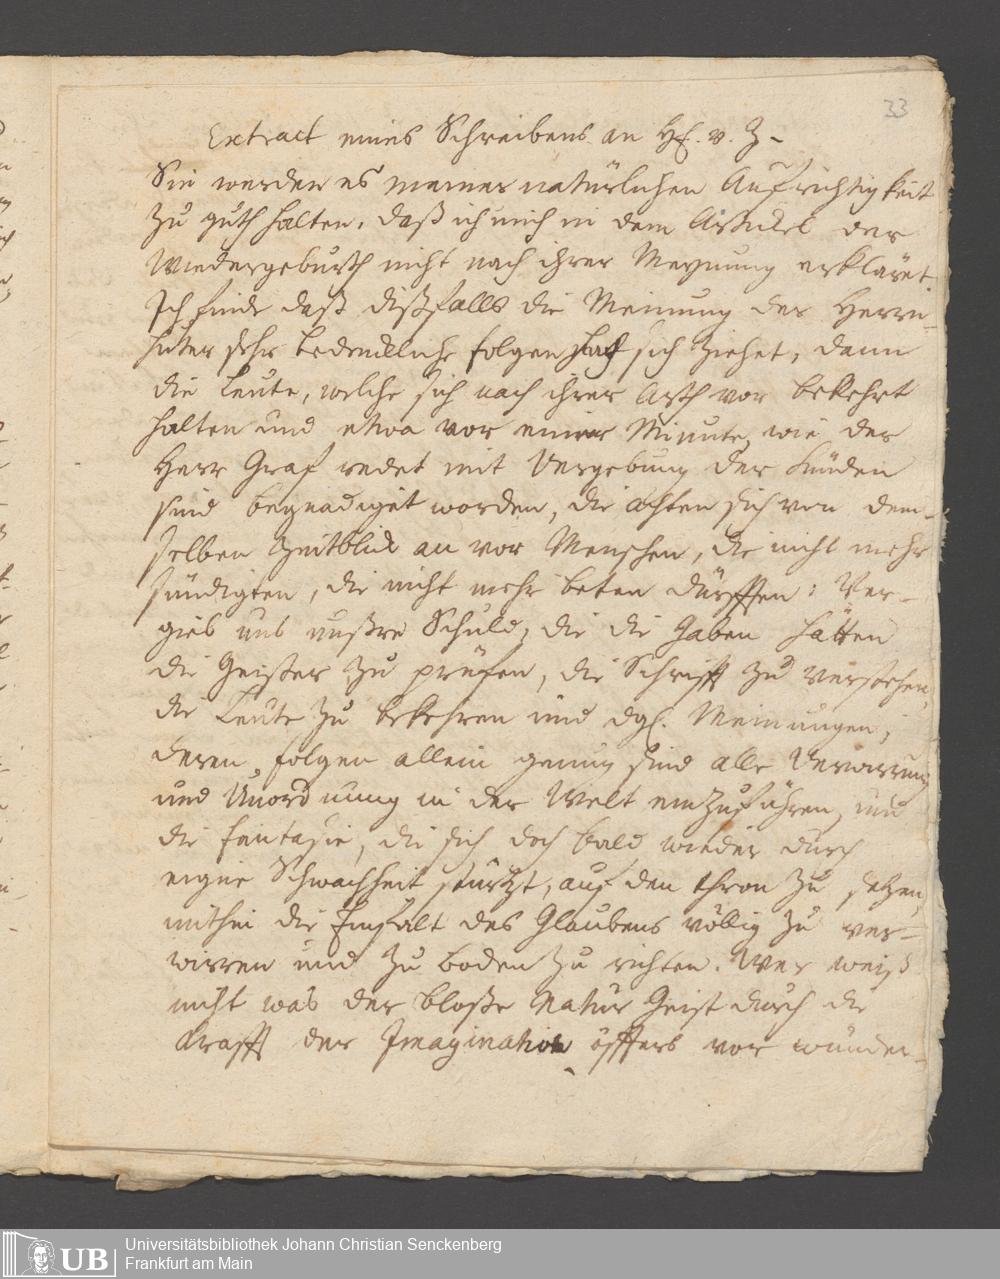 33
Extract eines Schreibens an H. v. Z.
Sie werden es meiner natürlichen Aufrichtigkeit
zu guth halten, daß ich mich in dem Articul der
Wiedergeburth nicht nach ihrer Meynung erkläret.
Ich finde daß dißfalls die Meinung der Herrn-
huter sehr bedenckliche folgen nach sich ziehet, dann
die Leute, welche sich nach ihrer Arth vor bekehrt
halten und etwa vor einer Minute, wie der
Herr Graf redet mit Vergebung der Sünden
sind begnadiget worden, die achten sich von dem-
selben Zeitblick an vor Menschen, die nicht mehr
sündigten, die nicht mehr beten dürfften: Ver-
gieb uns unßre Schuld, die die Gaben hätten
die Geister zu prüfen, die Schrifft zu verstehen,
die Leute zu bekehren und dgl. Meinungen,
deren folgen allein genung sind alle Verwirrung
und Unordnung in der Welt einzuführen, und
die fantasie, die sich doch bald wieder durch
eigne Schwachheit stürtzt, auf den thron zu setzen,
mithin die Einfalt des Glaubens völlig zu ver-
wirren und zu boden zu richten. Wer weiß
nicht was der bloße Natur Geist durch die
Krafft der Imagination öffters vor wunder-
UB
Universitätsbibliothek Johann Christian Senckenberg
Frankfurt am Main